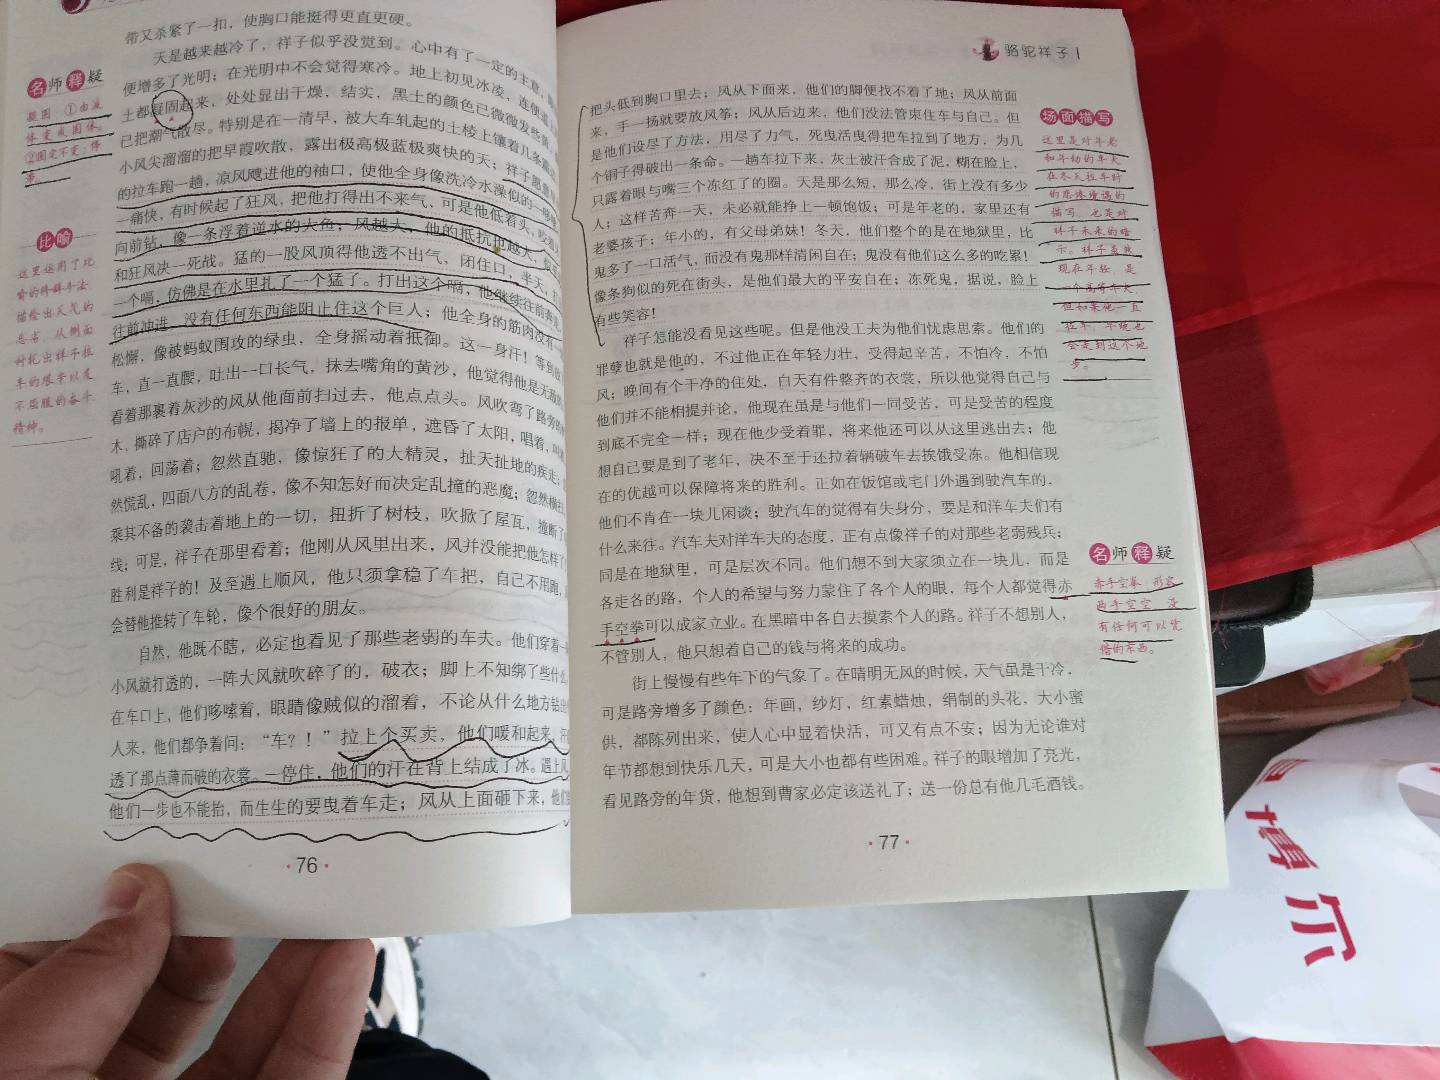 带又杀紧了一扣，使胸口能挺得更直更硬。
天是越来越冷了，祥子似乎没觉到。心中有了一定的主意，
便增多了光明；在光明中不会觉得寒冷。地上初见冰凌，连便道上
土都凝固起来，处处显出干燥，结实，黑土的颜色已微微发些黄，
已把潮气散尽。特别是在一清早，被大车轧起的土棱上镶着几条霜
小风尖溜溜的把早霞吹散，露出极高极蓝极爽快的天；祥子愿意
的拉车跑一趟，凉风飕进他的袖口，使他全身像洗冷水澡似的一哆嗦
一痛快。有时候起了狂风，把他打得出不来气，可是他低着头，咬着
向前钻，像一条浮着逆水的大鱼；风越大，他的抵抗也越大，似乎
和狂风决一死战。猛的一股风顶得他透不出气，闭住口，半天，打
一个嗝，仿佛是在水里扎了一个猛子。打出这个嗝，他继续往前奔走，
往前冲进，没有任何东西能阻止住这个巨人；他全身的筋肉没有一
松懈，像被蚂蚁围攻的绿虫，全身摇动着抵御。这一身汗！等到放
车，直一直腰，吐出一口长气，抹去嘴角的黄沙，他觉得他是无敌的
看着那裹着灰沙的风从他面前扫过去，他点点头。风吹弯了路旁的
木，撕碎了店户的布幌，揭净了墙上的报单，遮昏了太阳，唱着，叫
吼着，回荡着；忽然直驰，像惊狂了的大精灵，扯天扯地的疾走；
然慌乱，四面八方的乱卷，像不知怎好而决定乱撞的恶魔；忽然横扫
乘其不备的袭击着地上的一切，扭折了树枝，吹掀了屋瓦，撞断了
线；可是，祥子在那里看着；他刚从风里出来，风并没能把他怎样了
胜利是祥子的！及至遇上顺风，他只须拿稳了车把，自己不用跑，
会替他推转了车轮，像个很好的朋友。
自然，他既不瞎，必定也看见了那些老弱的车夫。他们穿着一
小风就打透的，一阵大风就吹碎了的，破衣；脚上不知绑了些什么
在车口上，他们哆嗦着，眼睛像贼似的溜着，不论从什么地方钻出
人来，他们都争着问：“车？！”拉上个买卖，他们暖和起来，汗
透了那点薄而破的衣裳。一停住，他们的汗在背上结成了冰。遇上风，
他们一步也不能抬，而生生的要曳着车走；风从上面砸下来，他们
·76·
名师释疑
凝固 ①由液
体变成固体。
②固定不变；停
滞。
比喻
这里运用了比
喻的修辞手法
描绘出天气的
恶劣，从侧面
衬托出祥子拉
车的艰辛以及
不屈服的奋斗
精神。
骆驼祥子
把头低到胸口里去；风从下面来，他们的脚便找不着了地；风从前面
来，手一扬就要放风筝；风从后边来，他们没法管束住车与自己。但
是他们设尽了方法，用尽了力气，死曳活曳得把车拉到了地方，为几
个铜子得破出一条命。一趟车拉下来，灰土被汗合成了泥，糊在脸上，
只露着眼与嘴三个冻红了的圈。天是那么短，那么冷，街上没有多少
人；这样苦奔一天，未必就能挣上一顿饱饭；可是年老的，家里还有
老婆孩子；年小的，有父母弟妹！冬天，他们整个的是在地狱里，比
鬼多了一口活气，而没有鬼那样清闲自在；鬼没有他们这么多的吃累！
像条狗似的死在街头，是他们最大的平安自在；冻死鬼，据说，脸上
有些笑容！
祥子怎能没看见这些呢。但是他没工夫为他们忧虑思索。他们的
罪孽也就是他的，不过他正在年轻力壮，受得起辛苦，不怕冷，不怕
风；晚间有个干净的住处，白天有件整齐的衣裳，所以他觉得自己与
他们并不能相提并论，他现在虽是与他们一同受苦，可是受苦的程度
到底不完全一样；现在他少受着罪，将来他还可以从这里逃出去；他
想自己要是到了老年，决不至于还拉着辆破车去挨饿受冻。他相信现
在的优越可以保障将来的胜利。正如在饭馆或宅门外遇到驶汽车的，
他们不肯在一块儿闲谈；驶汽车的觉得有失身分，要是和洋车夫们有
什么来往。汽车夫对洋车夫的态度，正有点像祥子的对那些老弱残兵；
同是在地狱里，可是层次不同。他们想不到大家须立在一块儿，而是
各走各的路，个人的希望与努力蒙住了各个人的眼，每个人都觉得赤
手空拳可以成家立业。在黑暗中各自去摸索个人的路。祥子不想别人，
不管别人，他只想着自己的钱与将来的成功。
街上慢慢有些年下的气象了。在晴明无风的时候，天气虽是干冷，
可是路旁增多了颜色：年画，纱灯，红素蜡烛，绢制的头花，大小蜜
供，都陈列出来，使人心中显着快活，可又有点不安；因为无论谁对
年节都想到快乐几天，可是大小也都有些困难。祥子的眼增加了亮光，
看见路旁的年货，他想到曹家必定该送礼了；送一份总有他几毛酒钱。
·77·
场面描写
这里是对年老
和年幼的车夫
在冬天拉车时
的悲惨境遇的
描写，也是对
祥子未来的暗
示。祥子虽然
现在年轻，是
一个高等车夫，
但如果他一直
拉车，早晚也
会走到这个地
步。
名师释疑
赤手空拳 形容
两手空空，没
有任何可以凭
借的东西。
博
尔